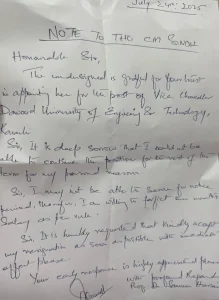 July 24th, 2025
NOTE TO THE CM SINDH
Honourable Sir,
The undersigned is grateful for your trust
in appointing her for the post of Vice Chancellor
Dawood University of Engineering & Technology,
Karachi
Sir, It is deep sorrow that I could not be
able to continue the position for the rest of the
term for my personal reasons
Sir, I may not be able to serve for notice
period, therefore, I am willing to forfeit one month's
Salary as per rule.
Sir, It is humbly requested that kindly accept
my resignation as soon as possible with immediate
effect please.
Your early response is highly appreciated please
with profound Regards
Prof. Dr.